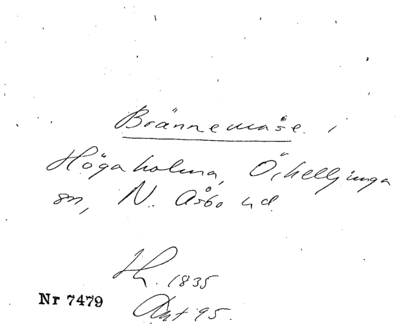 Brännemåse. i
Högaholma, Örkelljunga
sn, N. Åsbo hd.
Hs. 1835
Avt 95.
Nr 7479